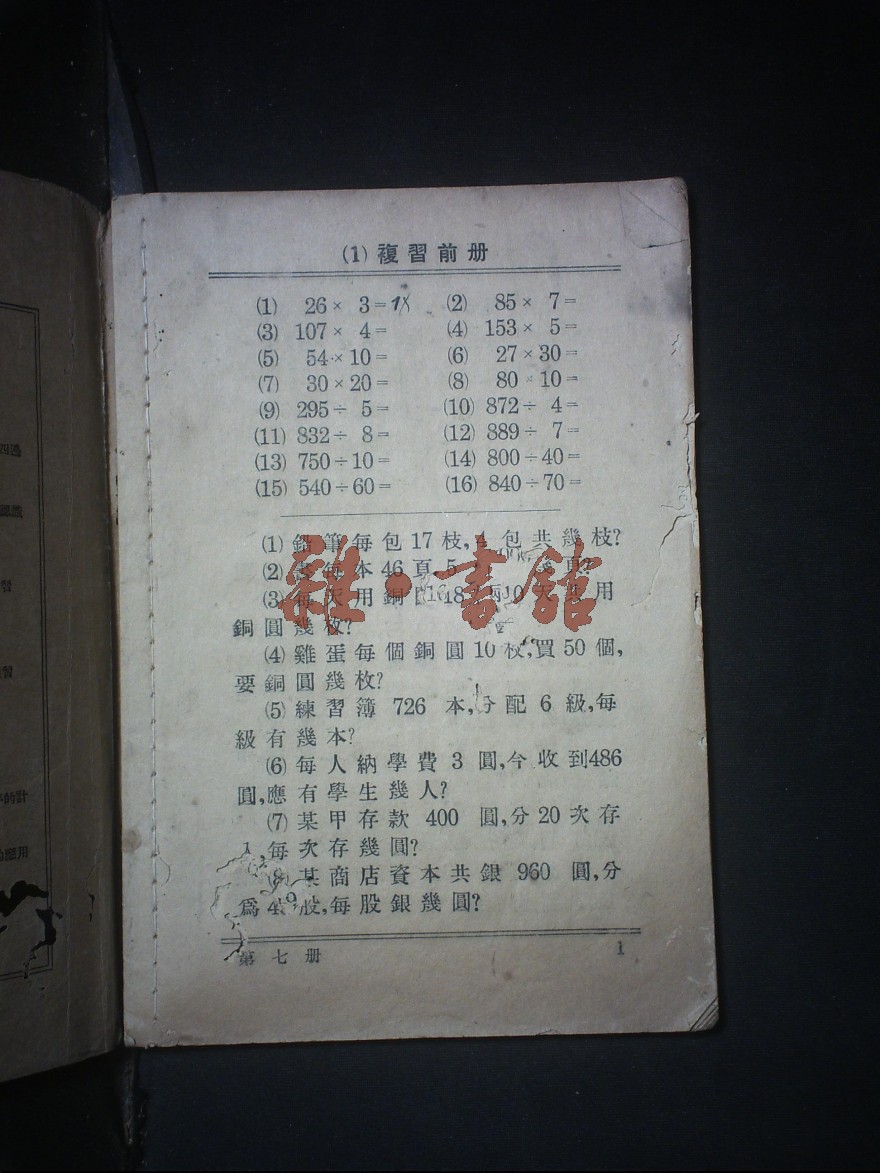 (1) 複習前册
(1) 26 × 3 =
(2) 85 × 7 =
(3) 107 × 4 =
(4) 153 × 5 =
(5) 54 × 10 =
(6) 27 × 30 =
(7) 30 × 20 =
(8) 80 × 10 =
(9) 295 ÷ 5 =
(10) 872 ÷ 4 =
(11) 832 ÷ 8 =
(12) 889 ÷ 7 =
(13) 750 ÷ 10 =
(14) 800 ÷ 40 =
(15) 540 ÷ 60 =
(16) 840 ÷ 70 =
(1) 鉛筆每包17枝,4包共幾枝?
(2) 書每本46頁,5 頁?
(3) 每天用銅 48 用
銅圓幾枚?
(4) 雞蛋每個銅圓10枚,買50個,
要銅圓幾枚?
(5) 練習簿 726 本,分配 6 級,每
級有幾本?
(6) 每人納學費 3 圓,今收到486
圓,應有學生幾人?
(7) 某甲存款 400 圓,分20次存
每次存幾圓?
某商店資本共銀 960 圓,分
爲 股,每股銀幾圓?
第七册
1
雜·書館
四邊
習
習
的計
應用